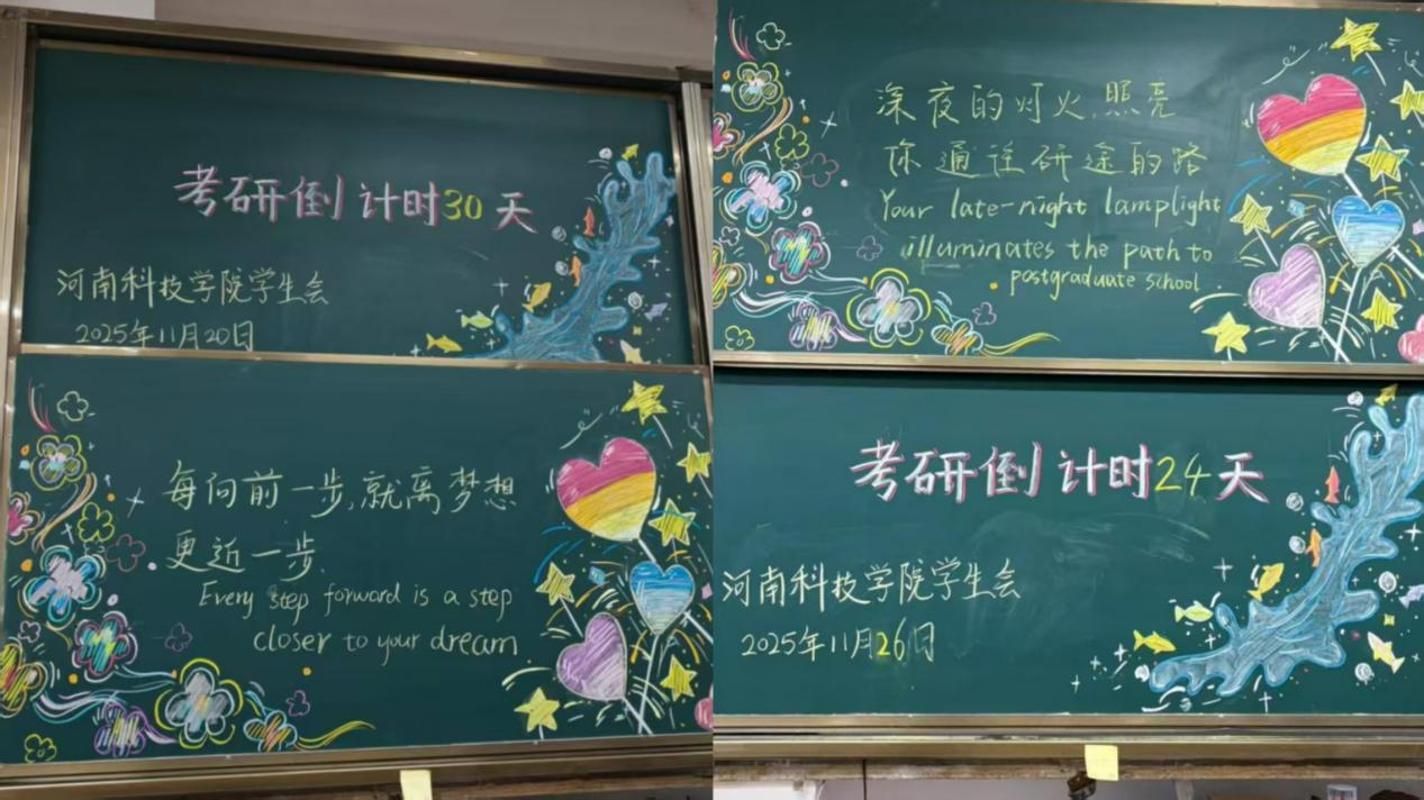 考研倒计时30天
河南科技学院学生会
2025年11月20日
每向前一步,就离梦想
更近一步.
Every step forward is a step
closer to your dream
深夜的灯火,照亮
你通往研途的路
Your late-night lamplight
illuminates the path to
postgraduate school
考研倒计时24天
河南科技学院学生会
2025年11月26日